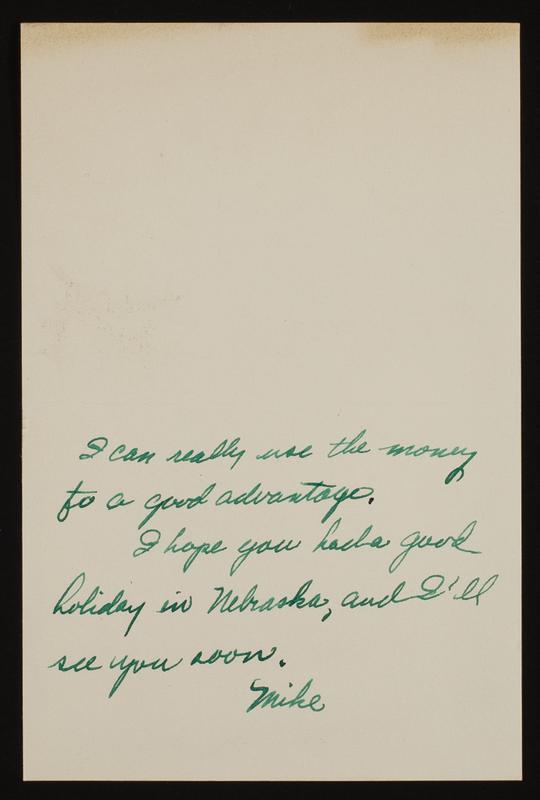 I can really use the money
to a good advantage.
I hope you had a good
holiday in Nebraska, and I'll
see you soon.
Mike